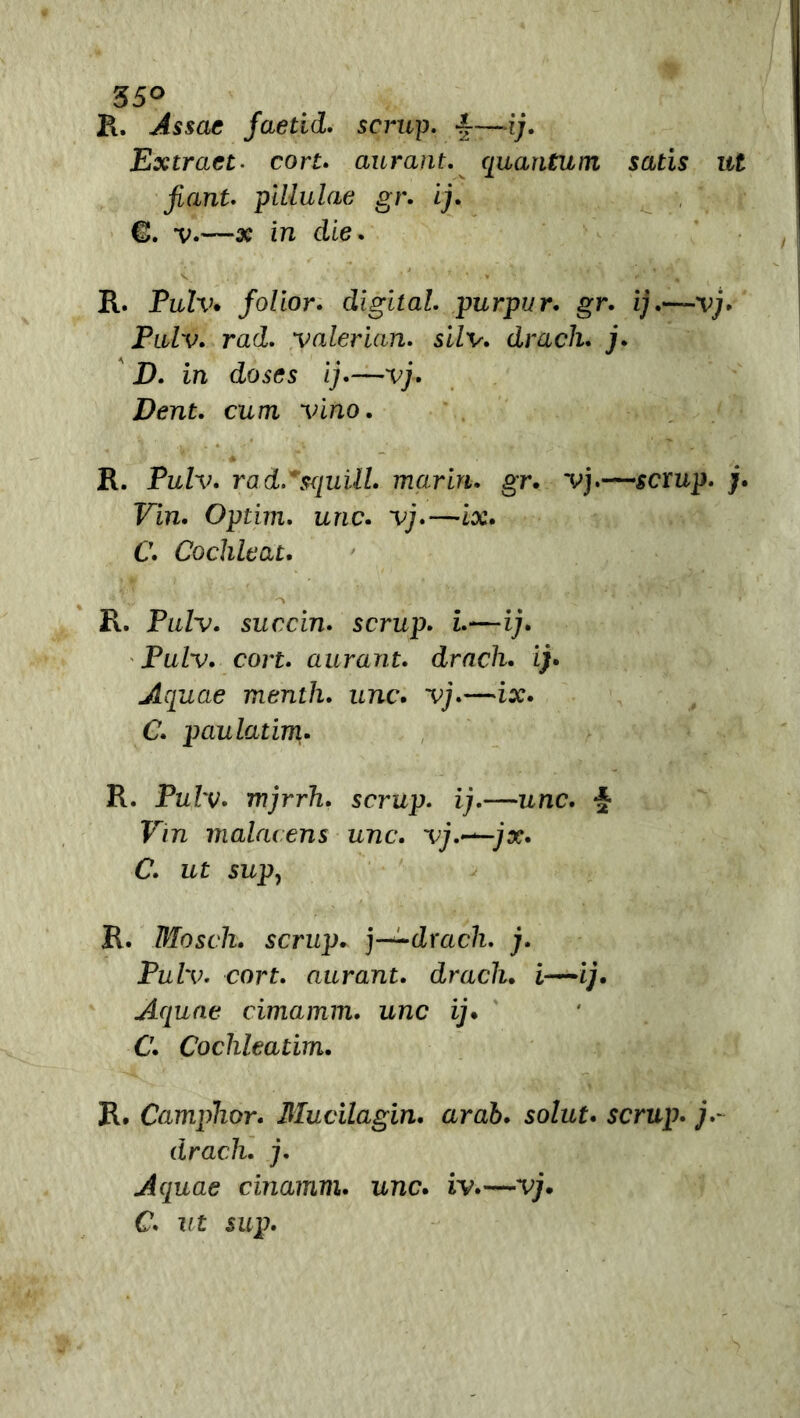 350
R. Assae faetid. scrup. ½—ij.
Extraet. cort. aurant. quantum satis ut
fiant. pillulae gr. ij.
C. v.—x in die.
R. Pulv. folior. digital. purpur. gr. ij.—vj.
Pulv. rad. valerian. silv. drach. j.
D. in doses ij.—vj.
Dent. cum vino.
R. Pulv. rad. squill. marin. gr. vj.—scrup. j.
Vin. Optim. unc. vj.—ix.
C. Cochleat.
R. Pulv. succin. scrup. i.—ij.
Pulv. cort. aurant. drach. ij.
Aquae menth. unc. vj.—ix.
C. paulatim.
R. Pulv. mjrrh. scrup. ij.—unc. ½
Vin malacens unc. vj.—jx.
C. ut sup,
R. Mosch. scrup. j—drach. j.
Pulv. cort. aurant. drach. i—ij.
Aquae cimamm. unc ij.
C. Cochleatim.
R. Camphor. Mucilagin. arab. solut. scrup. j.-
drach. j.
Aquae cinamm. unc. iv.—vj.
C. ut sup.